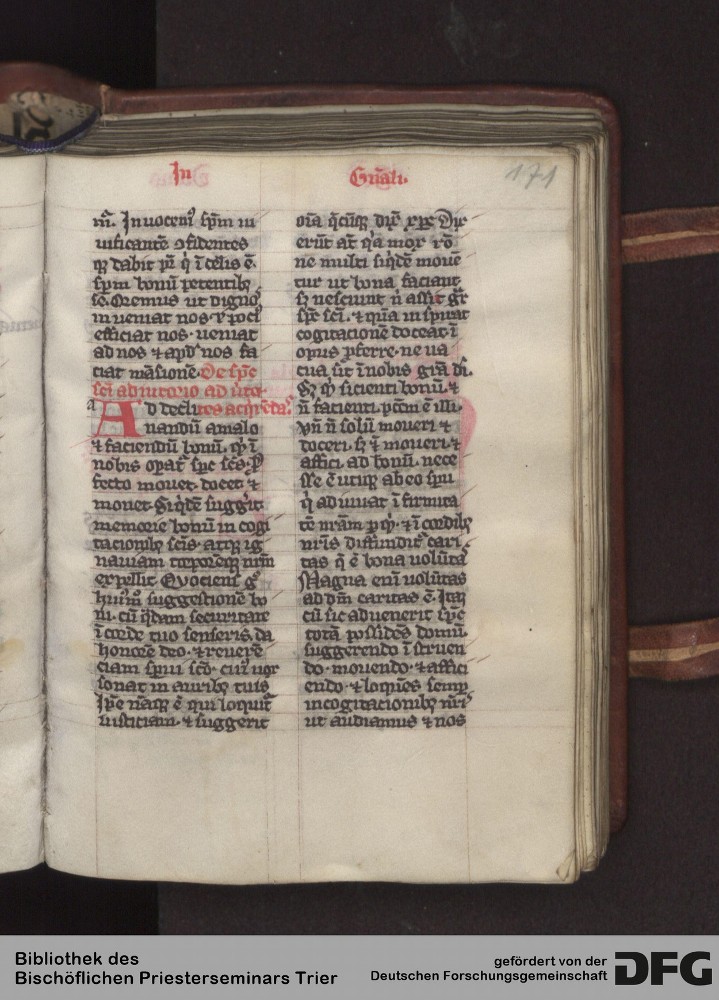 In
Gn̄ali
171
m̄. Inuocem⁹ sp̄m ui
uificantē ꝯfidentes
qꝫ dabit pr̄ qͥ ī celis ē.
sp̄m bonū petentibꝫ
se. Oremus ut dignoˢ
inueniat nos ⁊ ꝑoci
efficiat nos· ueniat
ad nos ⁊ apd̕ nos fa
ciat māsionē. De spē
sc̄i adiutorio ad
a
Ad declinandū a malo
⁊ faciendū bonū.
nobis opat̄ spc̄ sc̄s.
fecto mouet· docet ⁊
monet. Siqͥdē suggit
memorie bonū in cogi
tacionibꝫ sc̄is. atqꝫ ig
nauiam torporemqꝫ nr̄m
expellit. Quociens gͦ
huiꝰm̊ suggestionē bo
ni. cū qͣdam securitate
ī corde tuo senseris. da
honorē deo· ⁊ reuerē
ciam spirui sc̄o· cuiꝰ uox
sonat in auribꝫ tuis
Ip̄e nāqꝫ ē qui loquit̄
iusticiam· ⁊ suggerit
oīa q̄cūqꝫ dix̄ xpc̄ Dix̄
erūt at̄ qͥa mox rō
ne multi siqͥdē mouē
tur ut bona faciant
sꝫ nesciunt n̄ assit gr̄
spc̄ sc̄i. ⁊ qͥna inspirat
cogitacionē doceat ī
opus ꝓferre· ne ua
cua sit ī nobis grā di.
⁊
n̄ facienti pctm̄ ē illi·
Vn̄ n̄ solū moueri ⁊
doceri. sꝫ ⁊ moueri ⁊
affici ad bonū. nece
sse ē utiqꝫ ab eo spū
qͥ adiuuat ī firmita
tē nr̄am ⁊ ī cordibꝫ
nr̄is diffundit̄ cari
tas q̄ ē bona uolūtaˢ
Magna enī uolūtas
ad dm̄ caritas ē. Itaqꝫ
cū sic aduenerit spc̄
totā possidēs domū.
suggerendo īstruen
do· mouendo· ⁊ affici
endo· ⁊ loquēs semꝑ
in cogitacionibꝫ nr̄is
ut audiamus ⁊ nos
Bibliothek des
Bischöflichen Priesterseminars Trier
gefördert von der
Deutschen Forschungsgemeinschaft
DFG